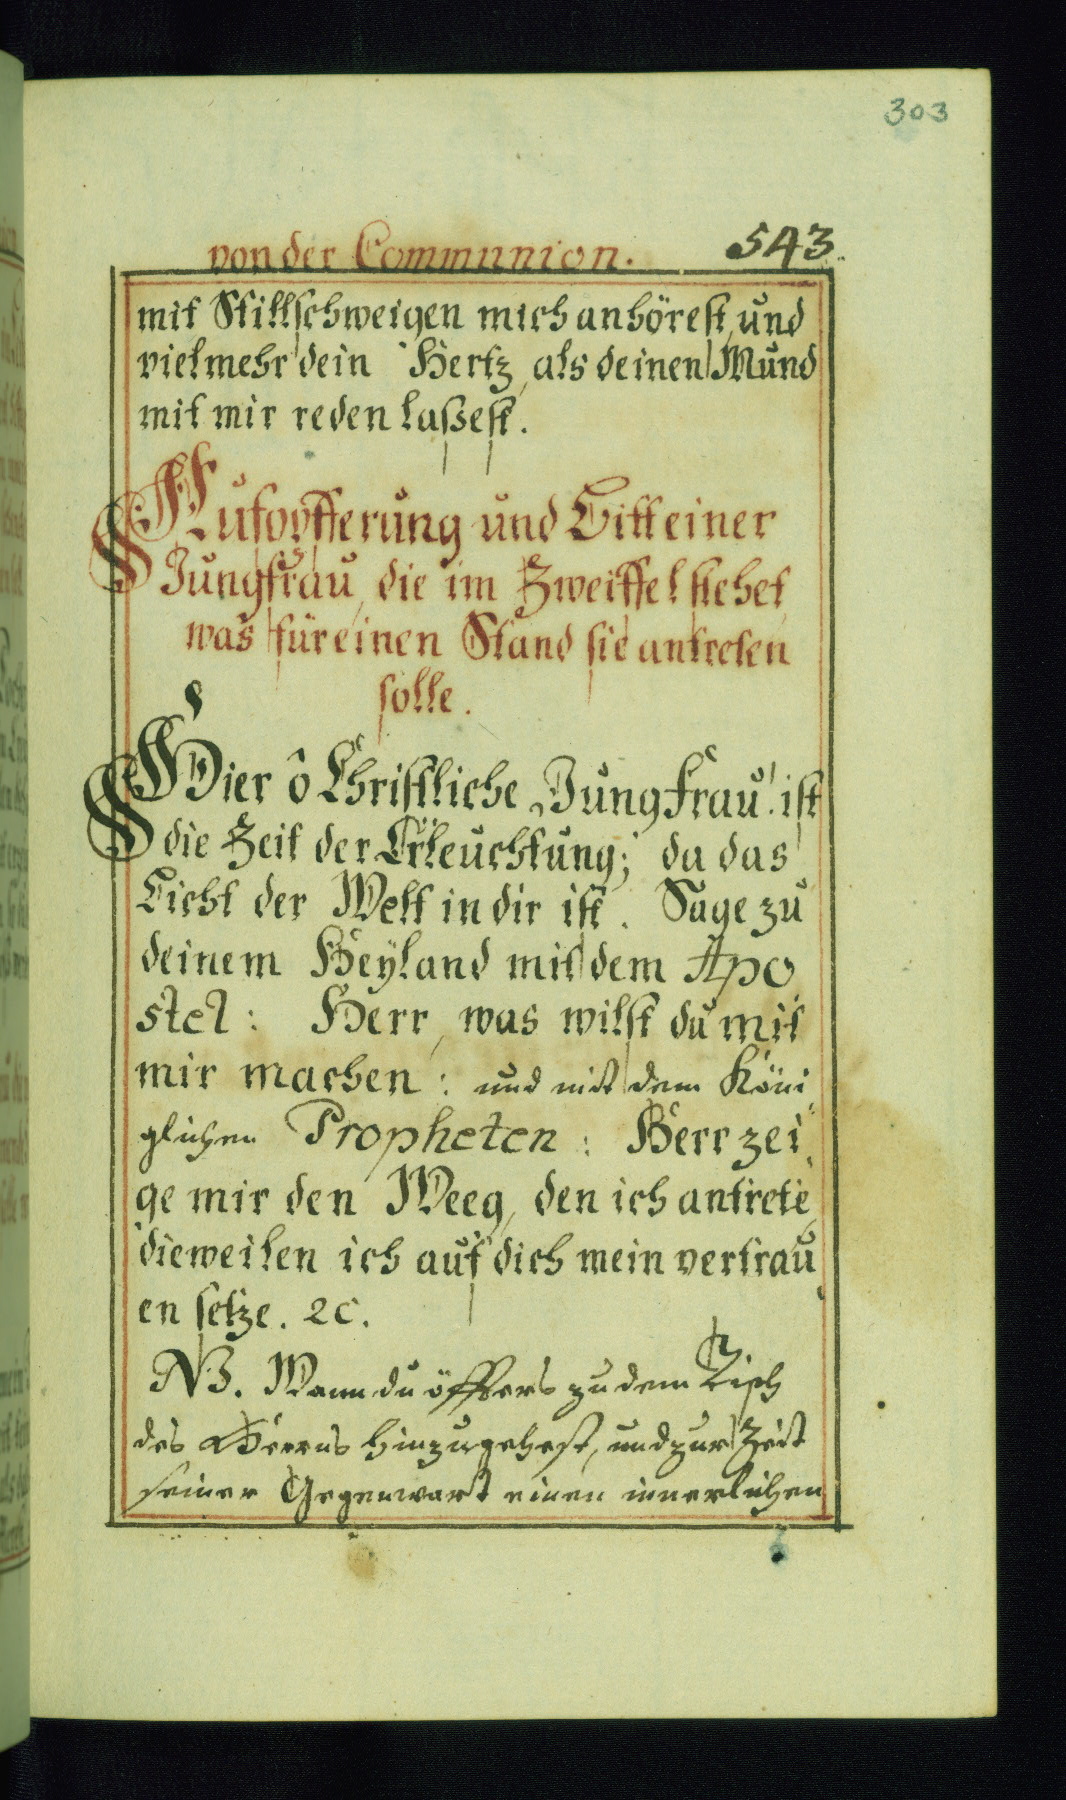 303
von der Communion. 543
mit Stillschweigen mich anhörest, und
vielmehr dein Hertz, als deinen Mund
mit mir reden laßest.
Aufopfferung und Bitt einer
Jungfrau, die im Zweiffel stehet,
was für einen Stand sie antreten
solle.
Hier ô Christliche Jungfrau! ist
die Zeit der Erleuchtung; da das
Licht der Welt in dir ist. Sage zu
deinem Heyland mit dem Apo
stel: Herr, was wilst du mit
mir machen: und mit dem Köni
glichen Propheten: Herr zei
ge mir den Weeg, den ich antrete,
dieweilen ich auf dich mein vertrau
en setze. ec.
NB. Wann du öffters zu dem Tisch
des Herrns hinzugehest, und zur Zeit
seiner Gegenwart einen innerlichen